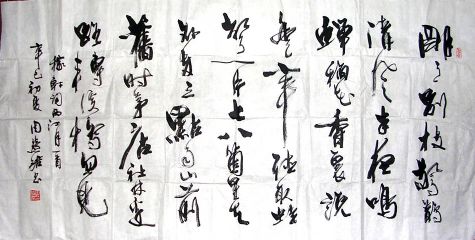 明月别枝驚鵲
清風半夜鳴
蟬稻花香裏說
豐年聽取蛙
聲一片七八箇星天
外兩三點雨山前
舊時茅店社林邊
路轉溪橋忽見
稼軒詞西江月一首
辛巳初夏周